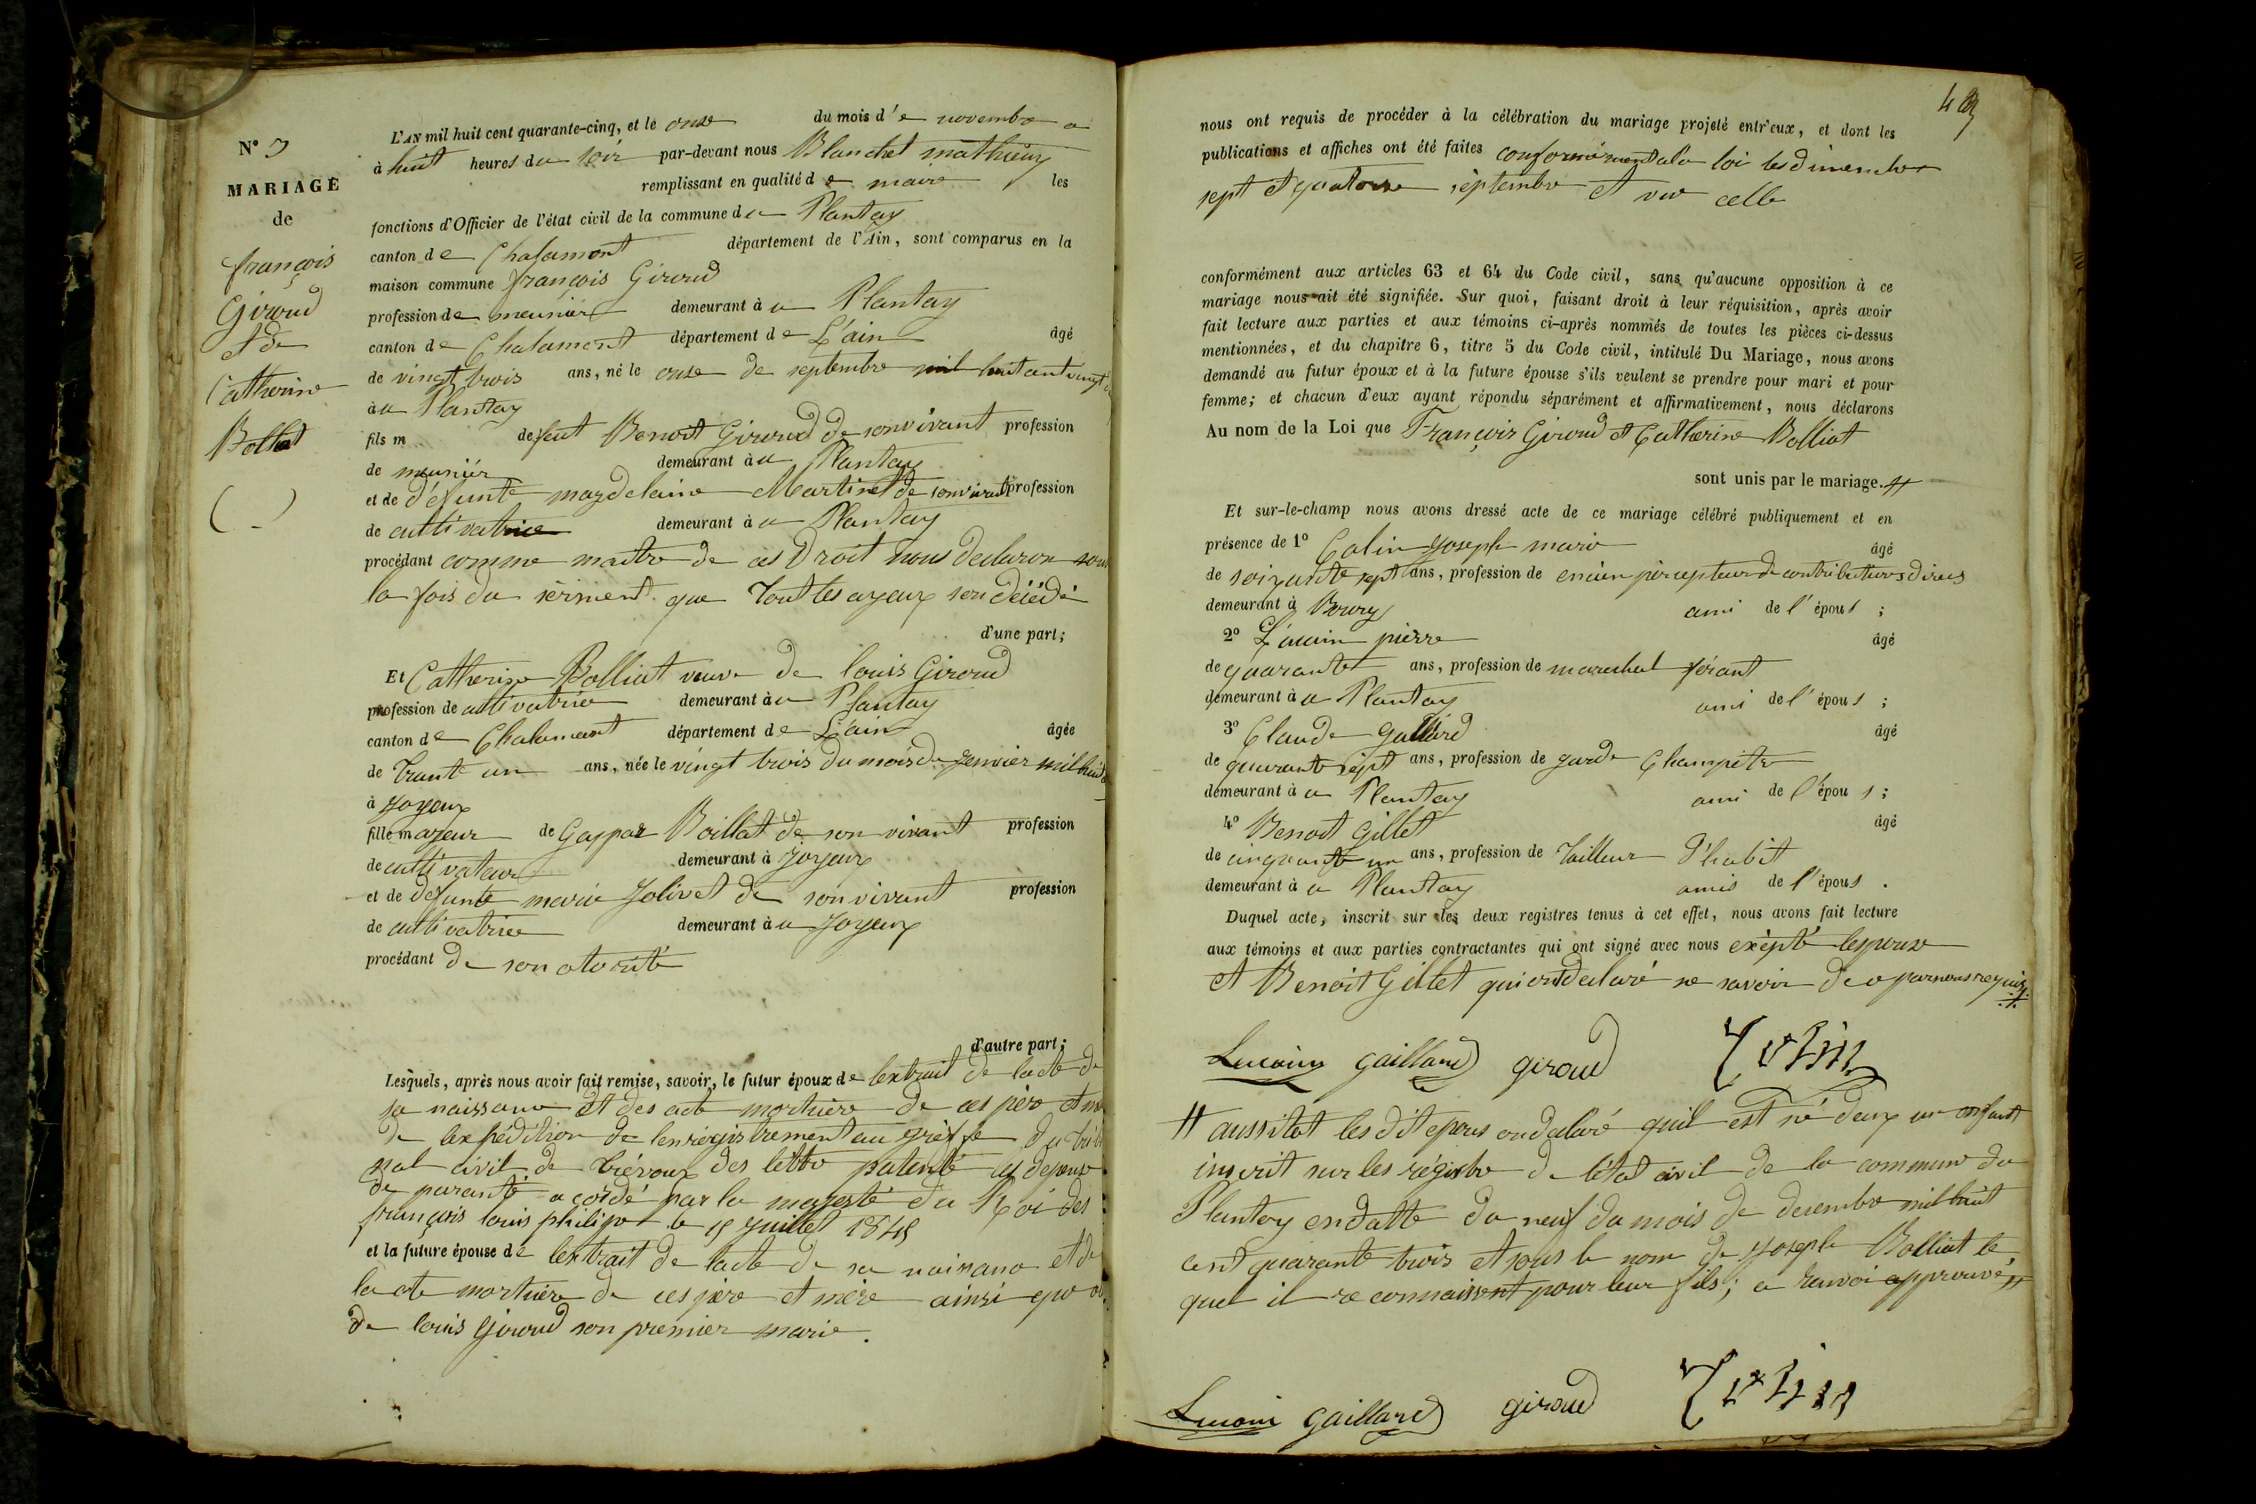 N° 7
MARIAGE
de
françois
Giroud
et de
Catherine
Bolliat
L'AN mil huit cent quarante-cinq, et le onse du mois d'e novembre a
à huit heures du soir par-devant nous Blanchet mathieux
remplissant en qualité de maire les
fonctions d'Officier de l'état civil de la commune du Plantay
canton de Chalamont département de l'Ain, sont comparus en la
maison commune françois Giroud
profession de meuniér demeurant à u Plantay
canton de Chalamont département de L'ain âgé
de vingt trois ans, né le onse de septembre mil huit cent vingt
à u Plantay
fils m de feut Benoit Giroud de son vivant profession
de meuniér demeurant à u Plantay
et de défunte magdelaine Martinet de son vivant profession
de cultivatrice demeurant à u Plantay
procédant comme maitre de ces Droit nous declaron sous
la fois du sèrment que tout les ayeux son décédé
d'une part;
Et Catherine Bolliat veuve de louis Giroud
profession de cultivatrice demeurant à u Plantay
canton de Chalamont département de L'ain âgée
de trante un ans, née le vingt trois du mois de Janvier mil huit
à Joyeux
fille mayeur de Gaspar Boillat de son vivant profession
de cultivateur demeurant à Joyeux
et de defunte marie Jolivet de son vivant profession
de cultivatrice demeurant à u Joyeux
procédant de son otorité
d'autre part;
Lesquels, après nous avoir fait remise, savoir, le futur époux de lextrait de lacte de
sa naissance et des acte mortuère de ces père et
de lexpédition de lenrégistrement au grèffe du
nal civil de trévoux des lettre patente de
de paranté acordé par la majesté du Roi des
françois louis philipe le 15 Juillet 1845
et la future épouse de lextrait de lacte de sa naisance et de
lacte mortuère de ces père et mère ainsi que
de louis Giroud son premier marie.
nous ont requis de procéder à la célébration du mariage projeté entr'eux, et dont les
publications et affiches ont été faites conformément a la loi les dimenches
sept et quatorse séptembre et vu celle
conformément aux articles 63 et 64 du Code civil, sans qu'aucune opposition à ce
mariage nous ait été signifiée. Sur quoi, faisant droit à leur réquisition, après avoir
fait lecture aux parties et aux témoins ci-après nommés de toutes les pièces ci-dessus
mentionnées, et du chapitre 6, titre 5 du Code civil, intitulé Du Mariage, nous avons
demandé au futur époux et à la future épouse s'ils veulent se prendre pour mari et pour
femme; et chacun d'eux ayant répondu séparément et affirmativement, nous déclarons
Au nom de la Loi que François Giroud et Catherine Bolliat
sont unis par le mariage. #
Et sur-le-champ nous avons dressé acte de ce mariage célébré publiquement et en
présence de 1° Colin Joseph marie âgé
de soizante sept ans, profession de encien pércepteur de contributions dirés
demeurant à Bourg ami de l'épous ;
2° Lucain pierre âgé
de quarante ans, profession de marechal férant
demeurant à u Plantay ami de l'épous ;
3° Claude Gallard âgé
de quarante sept ans, profession de garde Champètre
demeurant à u Plantay ami de l'épous ;
4° Benoit Gillet âgé
de cinquante un ans, profession de tailleur d'habit
demeurant à u Plantay amis de l'épous .
Duquel acte, inscrit sur les deux registres tenus à cet effet, nous avons fait lecture
aux témoins et aux parties contractantes qui ont signé avec nous exèpté lepouse
et Benoit Gillet qui ont declaré ne savoir de ce par nous requis
Lucain Gaillard giroud Colin
# aussitot les dit epous on declaré quil est né deux un enfant
inscrit sur les régistre de létat civil de la commune du
Plantay en datte du neuf du mois de desembre mil huit
cent quarante trois et sous le nom de Joseph Bolliat le
quel il reconnaissent pour leur fils; a ranvoi approuvé #
Lucain Gaillard giroud Colin